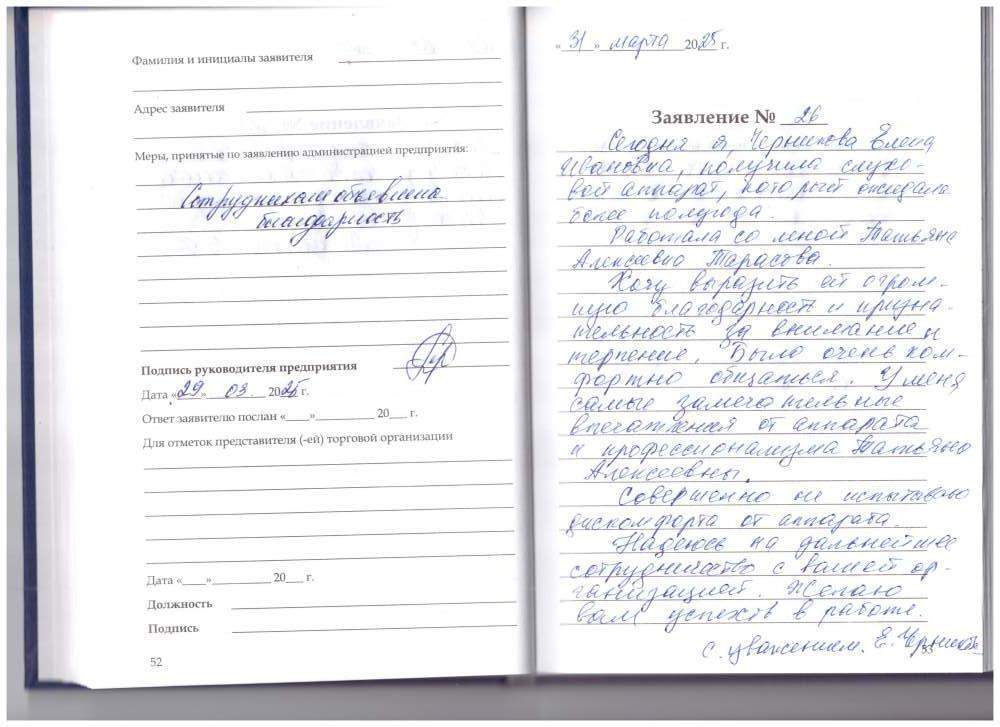 Фамилия и инициалы заявителя
Адрес заявителя
Меры, принятые по заявлению администрацией предприятия:
Сотрудникам объявлена
благодарность
Подпись руководителя предприятия
Дата «29» 03 2025 г.
Ответ заявителю послан «____»__________ 20___ г.
Для отметок представителя (-ей) торговой организации
Дата «____»__________ 20___ г.
Должность
Подпись
52
«31» марта 2025 г.
Заявление № 26
Сегодня я, Черникова Елена
Ивановна, получила слухо-
вой аппарат, который ожидала
более полугода.
Работала со мной Татьяна
Алексеевна Тарасова.
Хочу выразить ей огром-
ную благодарность и призна-
тельность за внимание и
терпение. Было очень ком-
фортно общаться. У меня
самые замечательные
впечатления от аппарата
и профессионализма Татьяны
Алексеевны.
Совершенно не испытываю
дискомфорта от аппарата.
Надеюсь на дальнейшее
сотрудничество с вашей ор-
ганизацией. Желаю
вам успехов в работе.
С уважением. Е. Черникова
53